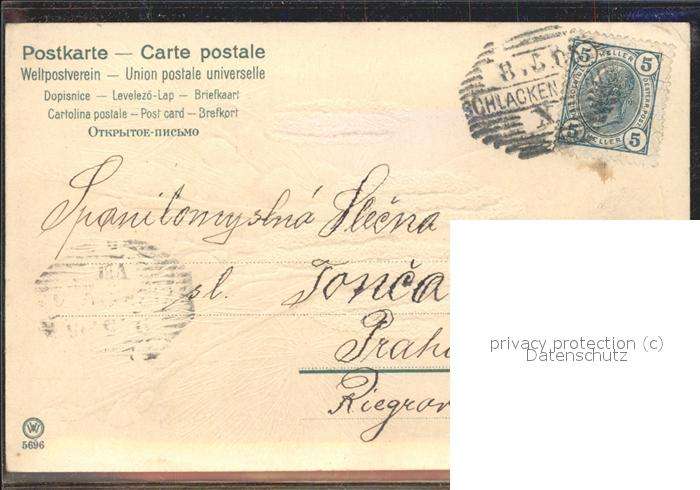 Postkarte — Carte postale
Weltpostverein — Union postale universelle
Dopisnice — Levelező-Lap — Briefkaart
Cartolina postale — Post card — Brefkort
Открытое-письмо
SCHLACKEN
5 HELLER 5
5 HELLER 5
Spanilomyslná Slečna
sl. Tonča
Praha
Riegrov
privacy protection (c)
Datenschutz
5696